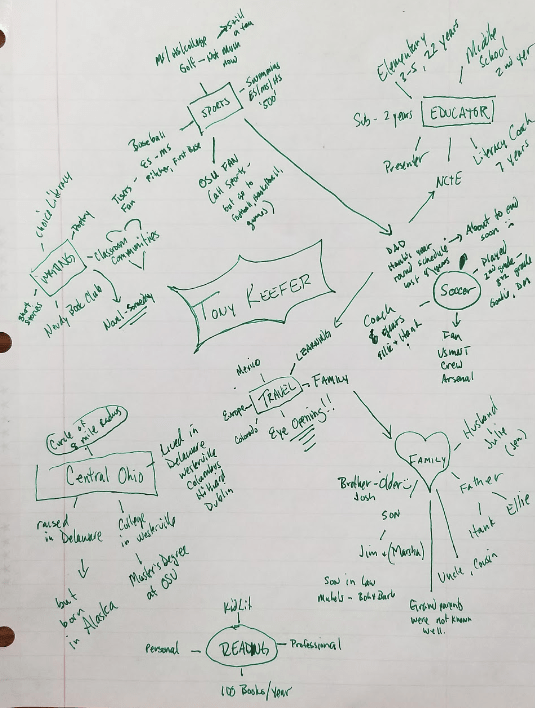 MS/HS/college → still a fan
Golf - Not much now
Swimming
ES/MS/HS
'500'
SPORTS
Baseball
ES - MS
Pitcher, First Base
Tigers
Fan
OSU FAN
(all sports -
but go to
football, basketball,
games)
Elementary
3-5, 22 years
Middle
School
2nd year
Sub - 2 years
EDUCATOR
Presenter
NCTE
Literacy Coach
7 years
Choice Literacy
Poetry
WRITING
Classroom
Communities
short
stories
Nerdy Book Club
Novel - Someday
TONY KEEFER
DAD
Handles year
round schedule
→ About to end
soon
Soccer
Played
2nd grade -
8th grade
Goalie, Dm
Coach
6 years
Ellie + Hank
Fan
USMNT
Crew
Arsenal
LEARNING
Mexico
TRAVEL
FAMILY
Europe
Colorado
Eye Opening!!
Circle of
8 mile radius
Central Ohio
Lived in
Delaware
Westerville
Columbus
Hilliard
Dublin
raised
in Delaware
College
in Westerville
but
born
in Alaska
Master's Degree
at OSU
FAMILY
Husband
Julie
(Jen)
Father
Hank
Ellie
Brother - Older
Josh
SON
Jim + (Marsha)
Son in law
Uncle, Cousin
Grandparents
were not known
well.
KidLit
Personal
READING
Professional
100 Books/Year